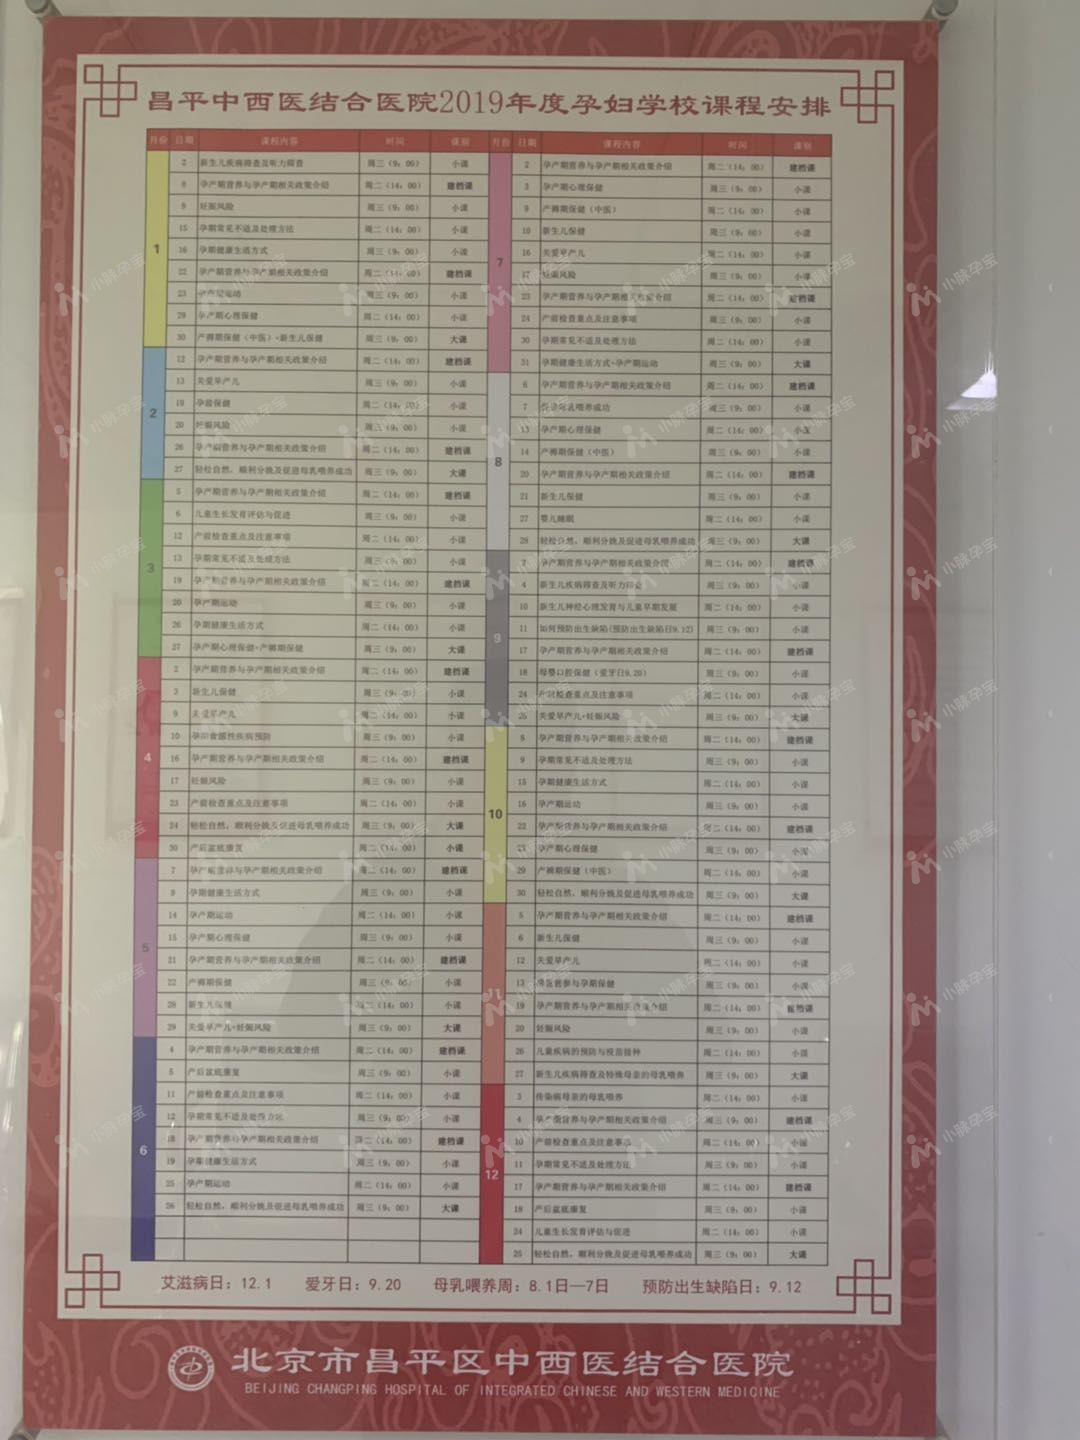 昌平中西医结合医院2019年度孕妇学校课程安排
月份 日期 课程内容 时间 课别
1
2 新生儿疾病筛查及听力筛查 周三(9:00) 小课
8 孕产期营养与孕产期相关政策介绍 周二(14:00) 建档课
9 妊娠风险 周三(9:00) 小课
15 孕期常见不适及处理方法 周二(14:00) 小课
16 孕期健康生活方式 周三(9:00) 小课
22 孕产期营养与孕产期相关政策介绍 周二(14:00) 建档课
23 孕产期运动 周三(9:00) 小课
29 孕产期心理保健 周二(14:00) 小课
30 产褥期保健(中医)+新生儿保健 周三(9:00) 大课
2
12 孕产期营养与孕产期相关政策介绍 周二(14:00) 建档课
13 关爱早产儿 周三(9:00) 小课
19 孕前保健 周二(14:00) 小课
20 妊娠风险 周三(9:00) 小课
26 孕产期营养与孕产期相关政策介绍 周二(14:00) 建档课
27 轻松自然,顺利分娩及促进母乳喂养成功 周三(9:00) 大课
3
5 孕产期营养与孕产期相关政策介绍 周二(14:00) 建档课
6 儿童生长发育评估与促进 周三(9:00) 小课
12 产前检查重点及注意事项 周二(14:00) 小课
13 孕期常见不适及处理方法 周三(9:00) 小课
19 孕产期营养与孕产期相关政策介绍 周二(14:00) 建档课
20 孕产期运动 周三(9:00) 小课
26 孕期健康生活方式 周二(14:00) 小课
27 孕产期心理保健+产褥期保健 周三(9:00) 大课
4
2 孕产期营养与孕产期相关政策介绍 周二(14:00) 建档课
3 新生儿保健 周三(9:00) 小课
9 关爱早产儿 周二(14:00) 小课
10 孕期食源性疾病预防 周三(9:00) 小课
16 孕产期营养与孕产期相关政策介绍 周二(14:00) 建档课
17 妊娠风险 周三(9:00) 小课
23 产前检查重点及注意事项 周二(14:00) 小课
24 轻松自然,顺利分娩及促进母乳喂养成功 周三(9:00) 大课
30 产后盆底康复 周二(14:00) 小课
5
7 孕产期营养与孕产期相关政策介绍 周二(14:00) 建档课
8 孕期健康生活方式 周三(9:00) 小课
14 孕产期运动 周二(14:00) 小课
15 孕产期心理保健 周三(9:00) 小课
21 孕产期营养与孕产期相关政策介绍 周二(14:00) 建档课
22 产褥期保健 周三(9:00) 小课
28 新生儿保健 周二(14:00) 小课
29 关爱早产儿+妊娠风险 周三(9:00) 大课
6
4 孕产期营养与孕产期相关政策介绍 周二(14:00) 建档课
5 产后盆底康复 周三(9:00) 小课
11 产前检查重点及注意事项 周二(14:00) 小课
12 孕期常见不适及处理方法 周三(9:00) 小课
18 孕产期营养与孕产期相关政策介绍 周二(14:00) 建档课
19 孕期健康生活方式 周三(9:00) 小课
25 孕产期运动 周二(14:00) 小课
26 轻松自然,顺利分娩及促进母乳喂养成功 周三(9:00) 大课
月份 日期 课程内容 时间 课别
7
2 孕产期营养与孕产期相关政策介绍 周二(14:00) 建档课
3 孕产期心理保健 周三(9:00) 小课
9 产褥期保健(中医) 周二(14:00) 小课
10 新生儿保健 周三(9:00) 小课
16 关爱早产儿 周二(14:00) 小课
17 妊娠风险 周三(9:00) 小课
23 孕产期营养与孕产期相关政策介绍 周二(14:00) 建档课
24 产前检查重点及注意事项 周三(9:00) 小课
30 孕期常见不适及处理方法 周二(14:00) 小课
31 孕期健康生活方式+孕产期运动 周三(9:00) 大课
8
6 孕产期营养与孕产期相关政策介绍 周二(14:00) 建档课
7 母乳喂养成功 周三(9:00) 小课
13 孕产期心理保健 周二(14:00) 小课
14 产褥期保健(中医) 周三(9:00) 小课
20 孕产期营养与孕产期相关政策介绍 周二(14:00) 建档课
21 新生儿保健 周三(9:00) 小课
27 婴儿睡眠 周二(14:00) 小课
28 轻松自然,顺利分娩及促进母乳喂养成功 周三(9:00) 大课
9
3 孕产期营养与孕产期相关政策介绍 周二(14:00) 建档课
4 新生儿疾病筛查及听力筛查 周三(9:00) 小课
10 新生儿神经心理发育与儿童早期发展 周二(14:00) 小课
11 如何预防出生缺陷(预防出生缺陷日9.12) 周三(9:00) 小课
17 孕产期营养与孕产期相关政策介绍 周二(14:00) 建档课
18 母婴口腔保健(爱牙日9.20) 周三(9:00) 小课
24 产前检查重点及注意事项 周二(14:00) 小课
25 关爱早产儿+妊娠风险 周三(9:00) 大课
10
8 孕产期营养与孕产期相关政策介绍 周二(14:00) 建档课
9 孕期常见不适及处理方法 周三(9:00) 小课
15 孕期健康生活方式 周二(14:00) 小课
16 孕产期运动 周三(9:00) 小课
22 孕产期营养与孕产期相关政策介绍 周二(14:00) 建档课
23 孕产期心理保健 周三(9:00) 小课
29 产褥期保健(中医) 周二(14:00) 小课
30 轻松自然,顺利分娩及促进母乳喂养成功 周三(9:00) 大课
11
5 孕产期营养与孕产期相关政策介绍 周二(14:00) 建档课
6 新生儿保健 周三(9:00) 小课
12 关爱早产儿 周二(14:00) 小课
13 参与孕期保健 周三(9:00) 小课
19 孕产期营养与孕产期相关政策介绍 周二(14:00) 建档课
20 妊娠风险 周三(9:00) 小课
26 儿童疾病的预防与疫苗接种 周二(14:00) 小课
27 新生儿疾病筛查及特殊母亲的母乳喂养 周三(9:00) 大课
12
3 传染病母亲的母乳喂养 周二(14:00) 小课
4 孕产期营养与孕产期相关政策介绍 周三(9:00) 建档课
10 产前检查重点及注意事项 周二(14:00) 小课
11 孕期常见不适及处理方法 周三(9:00) 小课
17 孕产期营养与孕产期相关政策介绍 周二(14:00) 建档课
18 产后盆底康复 周三(9:00) 小课
24 儿童生长发育评估与促进 周二(14:00) 小课
25 轻松自然,顺利分娩及促进母乳喂养成功 周三(9:00) 大课
艾滋病日:12.1 爱牙日:9.20 母乳喂养周:8.1日—7日 预防出生缺陷日:9.12
北京市昌平区中西医结合医院
BEIJING CHANGPING HOSPITAL OF INTEGRATED CHINESE AND WESTERN MEDICINE
小脉孕宝